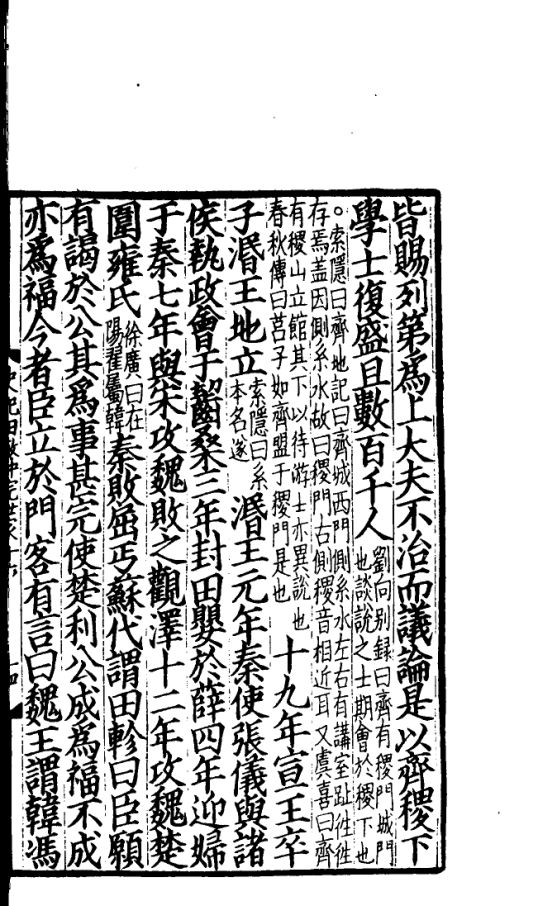 皆賜列第為上大夫不治而議論是以齊稷下
學士復盛且數百千人劉向別録曰齊有稷門城門
也談說之士期會於稷下也
○索隱曰齊地記曰齊城西門側系水左右有講室趾徃徃
存焉蓋因側系水故曰稷門古側稷音相近耳又虞喜曰齊
有稷山立館其下以待游士亦異說也
春秋傳曰莒子如齊盟于稷門是也十九年宣王卒
子湣王地立索隱曰系
本名遂湣王元年秦使張儀與諸
侯執政會于齧桑三年封田嬰於薛四年迎婦
于秦七年與宋攻魏敗之觀澤十二年攻魏楚
圍雍氏徐廣曰在
陽翟屬韓秦敗屈丐蘇代謂田軫曰臣願
有謁於公其為事甚完使楚利公成為福不成
亦為福今者臣立於門客有言曰魏王謂韓馮